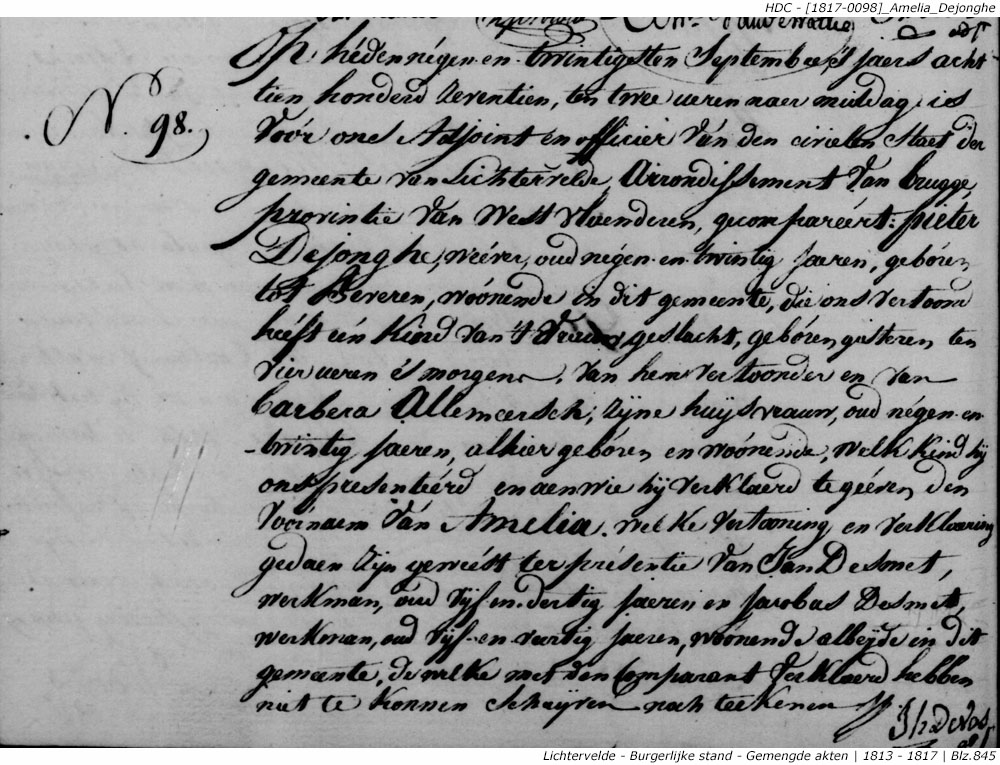 HDC - [1817-0098]_Amelia_Dejonghe
N. 98.
Op héden négen-en-twintigsten September 's jaers acht-
tien honderd zeventien, ten twee ueren naer middag, is
voór ons Adjoint en officier van den civielen staet der
gemeente van Lichtervelde, Arrondissement van brugge,
provintie van West vlaenderen, gecompareért: piéter
Dejonghe, wéver, oud négen-en-twintig jaeren, gebóren
tot Beveren, woónende in dit gemeente, die ons vertoond
heéft eén kind van 't vrauw geslacht, gebóren gisteren ten
vier ueren 's morgens, van hem vertoonder en van
barbera Allemeersch, zyne huysvrauw, oud négen-en-
-twintig jaeren, alhier gebóren en woónende, welk kind hij
ons presenteérd en aen wie hij verklaerd te geéven den
voórnaem van Amelia. welke vertooning en verklaering
gedaen zyn geweést ter présentie van Jan Desmet,
werkman, oud vijf-en-dertig jaeren en Jacobus Desmet,
werkman, oud vijf-en-veertig jaeren, woónende albeijde in dit
gemeente, de welke met den Comparant verklaerd hebben
niet te konnen schryven noch teekenen
J h De Vos
Lichtervelde - Burgerlijke stand - Gemengde akten | 1813 - 1817 | Blz.845